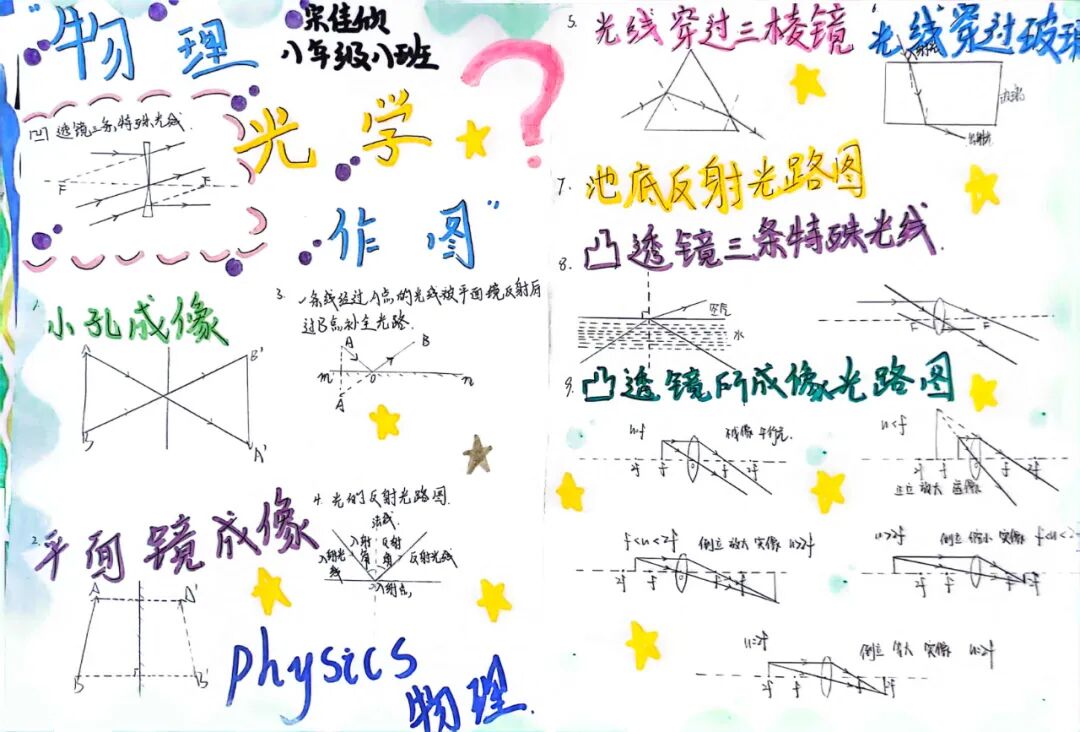 "物理
宋佳欣
八年级八班
光学
作图"
凹透镜三条特殊光线
F
F
1.
小孔成像
A
B'
B
A'
2.
平面镜成像
A
A'
B
B'
3. 一条线经过A点的光线被平面镜反射后
过B点补全光路.
A
B
m
o
n
A
4. 光的反射光路图.
法线
入射
反射
入射光线
角
角
反射光线
入射点
physics
物理.
5. 光线穿过三棱镜
光线穿过玻璃
入射光
出射光
7. 池底反射光路图
8. 凸透镜三条特殊光线.
空气
水
F
F
9. 凸透镜所成像光路图
u=f
不成像 平行光.
2f
f
o
f
2f
u<f
2f
f
o
f
2f
正立 放大 虚像
f<u<2f
倒立 放大 实像 u>2f
2f
f
o
f
u>2f
倒立 缩小 实像 f<u<2
2f
f
f
2f
u=2f
倒立 等大 实像 u=2f
2f
f
f
2f